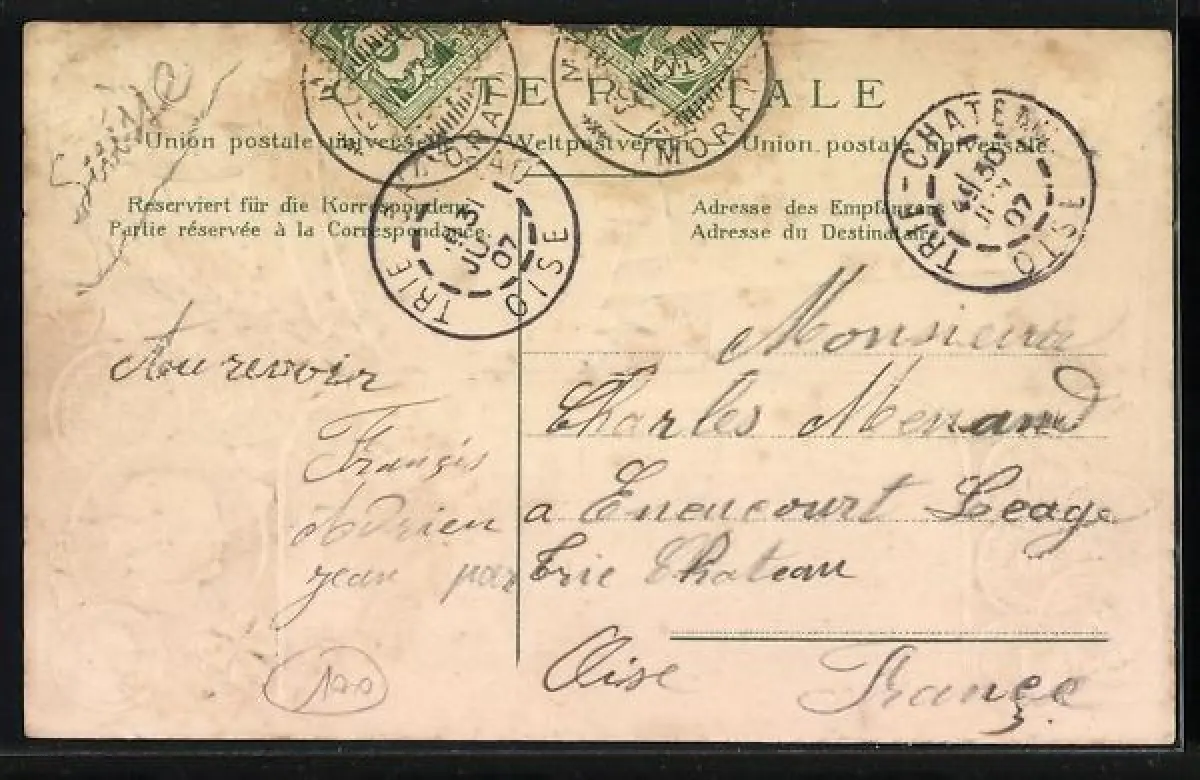 Suisse
TE P TALE
Union postale universelle Weltpostverein Union postale universelle.
MORAT
MORAT
TRIE-CHATEAU
30
07
OISE
TRIE
31
07
OISE
Reserviert für die Korrespondenz
Partie réservée à la Correspondance.
Adresse des Empfängers
Adresse du Destinataire
Au revoir
Françis
Adrien
jean
Monsieur
Charles Menand
a Enencourt Leage
par Trie Chateau
Oise
France
100